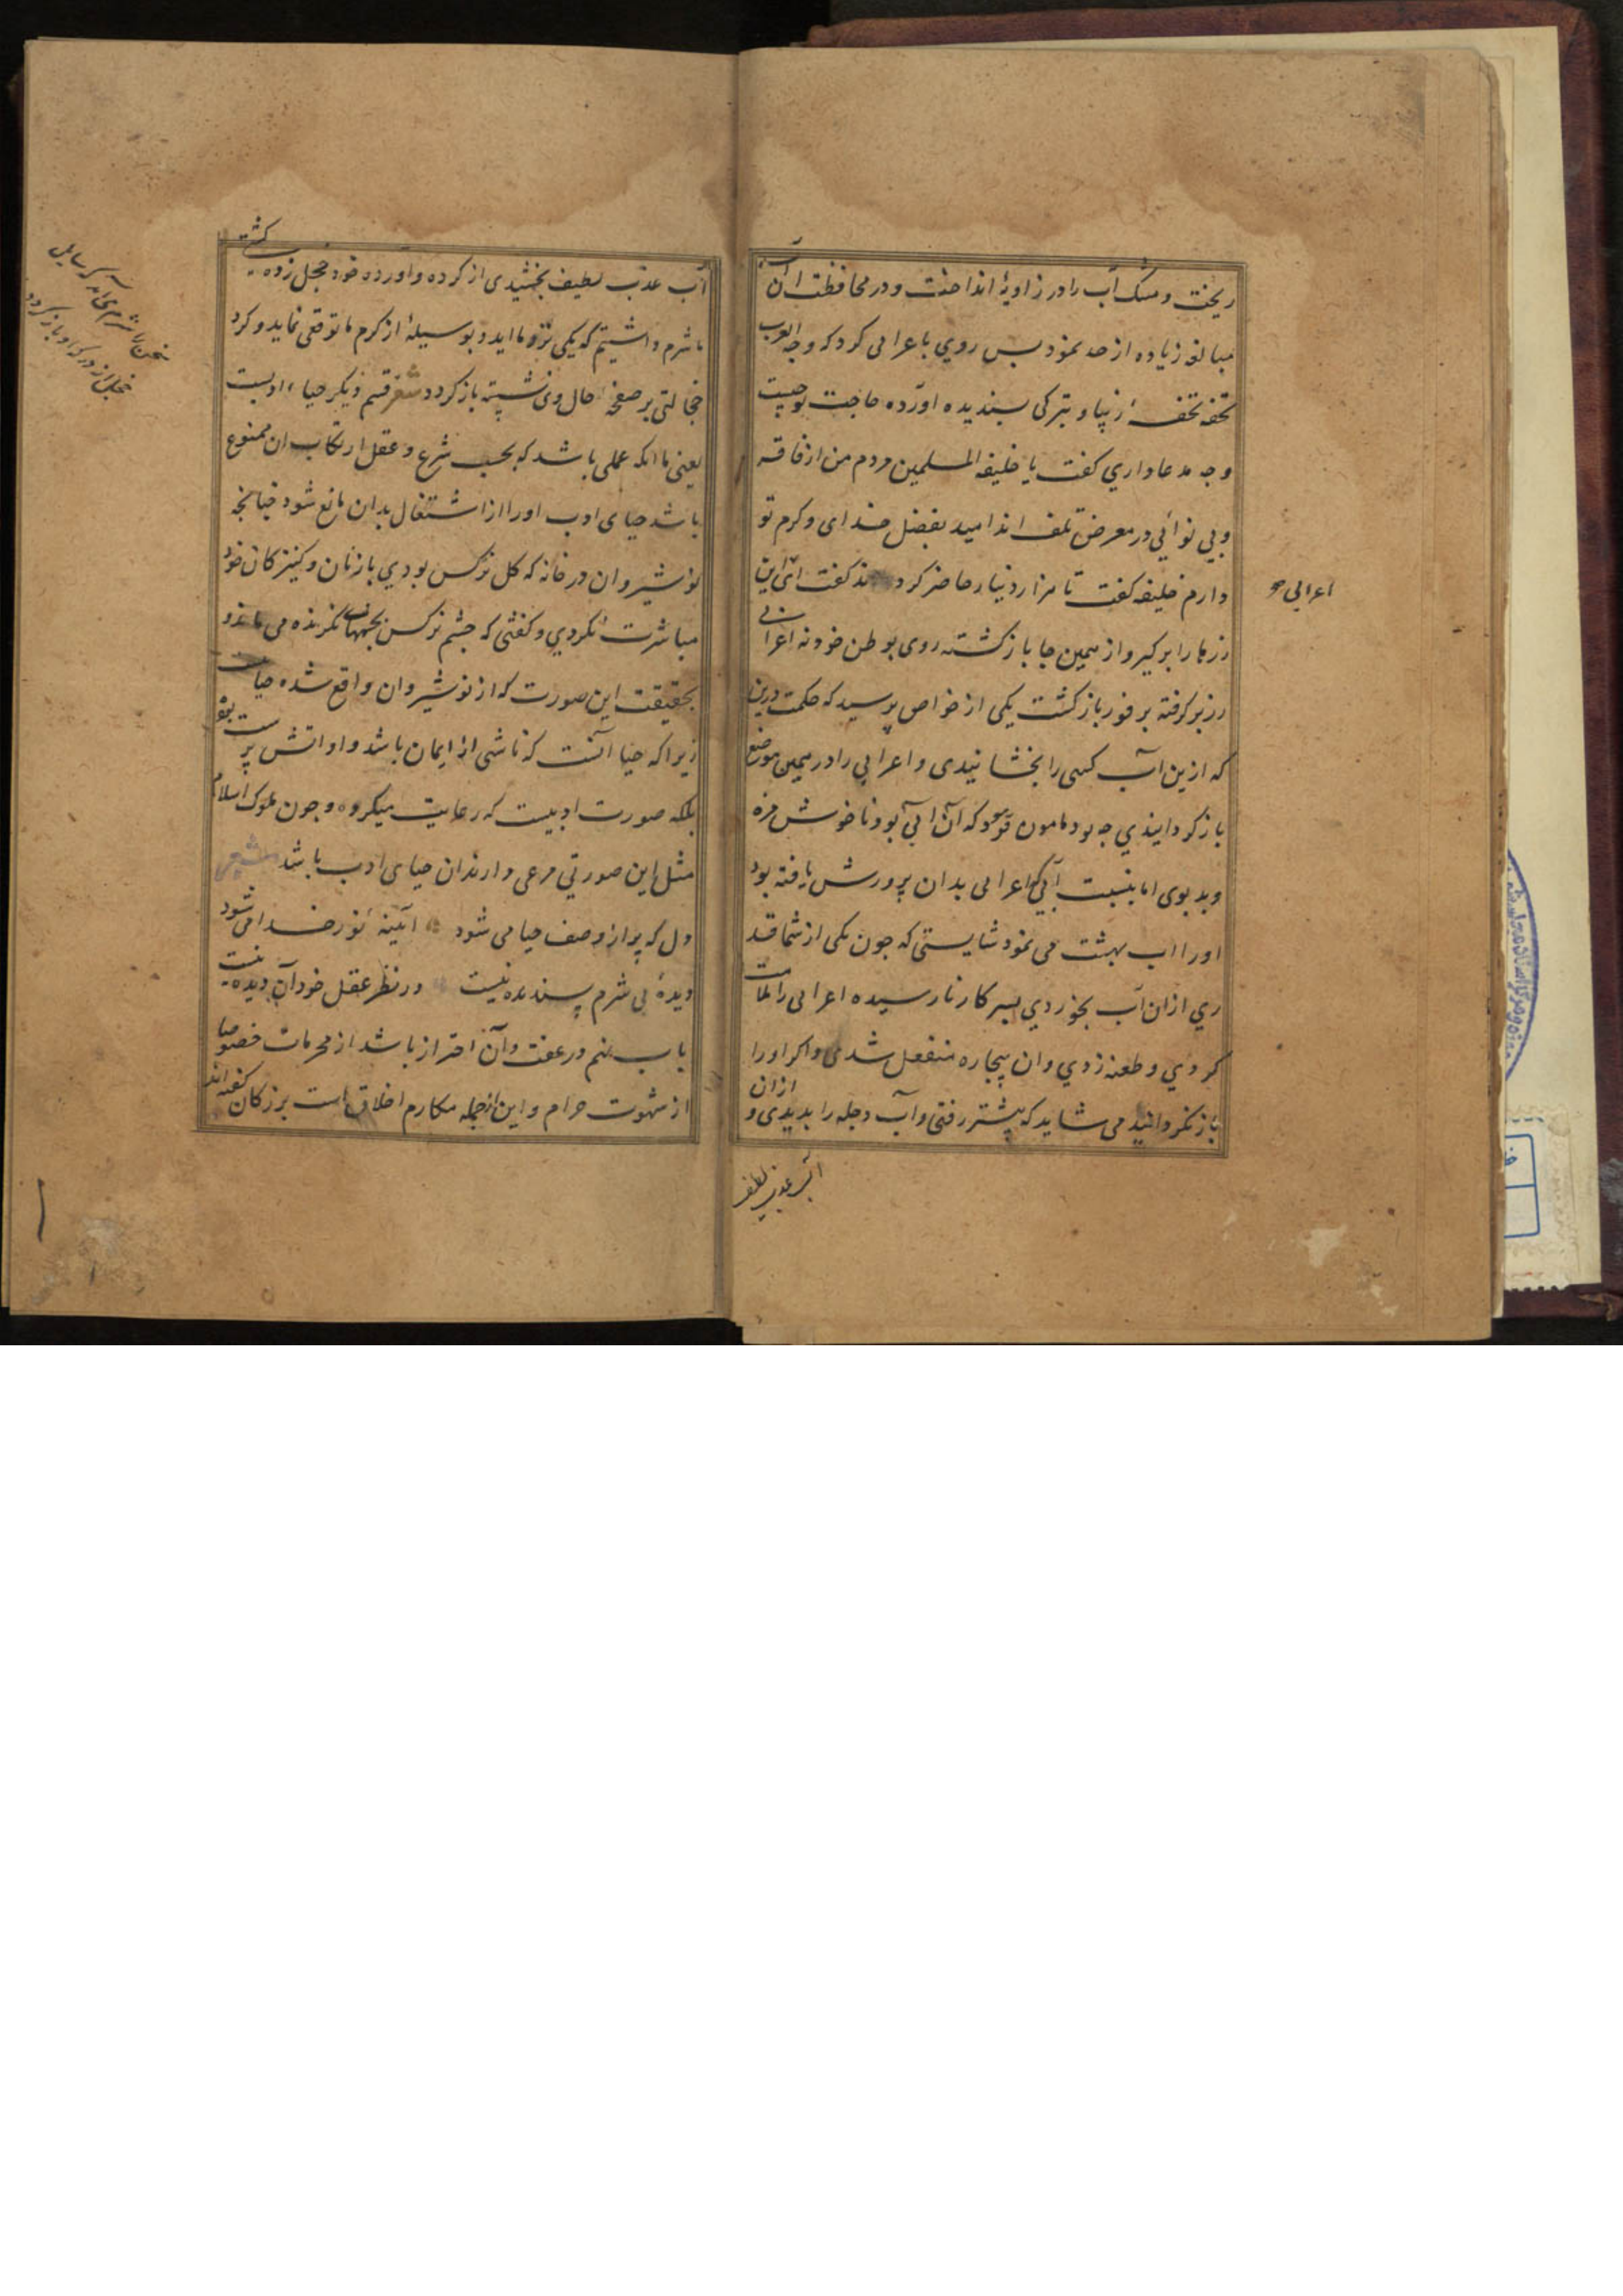 ریخت و مشک آب را در زاویهٔ انداخت و در محافظت آن آب
مبالغه زیاده از حد نمود پس روی باعرابی کرد که وجه العرب
تحفه تحفهٔ زیبا و تبرکی پسندیده اورده حاجت تو چیست
و چه مدعا داری کفت یا خلیفه المسلمین مردم من از فاقه
و بی نوائی در معرض تلف اند امید بفضل خدای و کرم تو
دارم خلیفه کفت تا هزار دینار حاضر کردند کفت ای این
زرها را بر کیر و از همین جا باز کشته روی بوطن خود نه اعرابی
زر بر کرفته بر فور باز کشت یکی از خواص پرسید که حکمت درین
که ازین آب کسی را نچشانیدی و اعرابی را در همین موضع
باز کردانیدی چه بود مامون فرمود که آن آبی بود ناخوش مزه
و بد بوی اما بنسبت آبی که اعرابی بدان پرورش یافته بود
او را اب بهشت می نمود شایستی که چون یکی از شما قد
ری ازان آب بخوردی بسر کار نارسیده اعرابی را ملامت
کردی و طعنه زدی و ان بیچاره منفعل شدی و اکر او را
باز نکردانیدمی شاید که پیشتر رفتی و آب دجله را بدیدی و ازان
آب عذب لطیف
اعرابی
آب عذب لطیف بچشیدی از کرده و آورده خود خجل زده کشتی
ما شرم داشتیم که یکی نزد ما اید و بوسیلهٔ از کرم ما توقعی نماید و کرد
خجالتی بر صفحهٔ حال وی نشسته باز کردد شعر قسم دیکر حیاء ادبست
یعنی ما انکه عملی باشد که بحسب شرع و عقل ارتکاب ان ممنوع
باشد حیای ادب او را از اشتغال بدان مانع شود چنانچه
نوشیروان در خانه که کل نرکس بودی با زنان و کنیزکان خود
مباشرت نکردی و کفتی که چشم نرکس بچشمهای نکرنده می ماند و
بحقیقت این صورت که از نوشیروان واقع شده حیا نیست
زیرا که حیا آنست که ناشی از ایمان باشد و او اتش پرست بود
بلکه صورت ادبیست که رعایت میکرده و چون ملوک اسلام
مثل این صورتی مرعی دارند ان حیای ادب باشد شعر
دل که پر از وصف حیا می شود آیینهٔ نور خدا می شود
دیدهٔ بی شرم پسندیده نیست در نظر عقل خود آن دیده نیست
باب نهم در عفت و آن احتراز باشد از محرمات خصوصا
از شهوت حرام و این از جمله مکارم اخلاق است بزرکان کفته اند